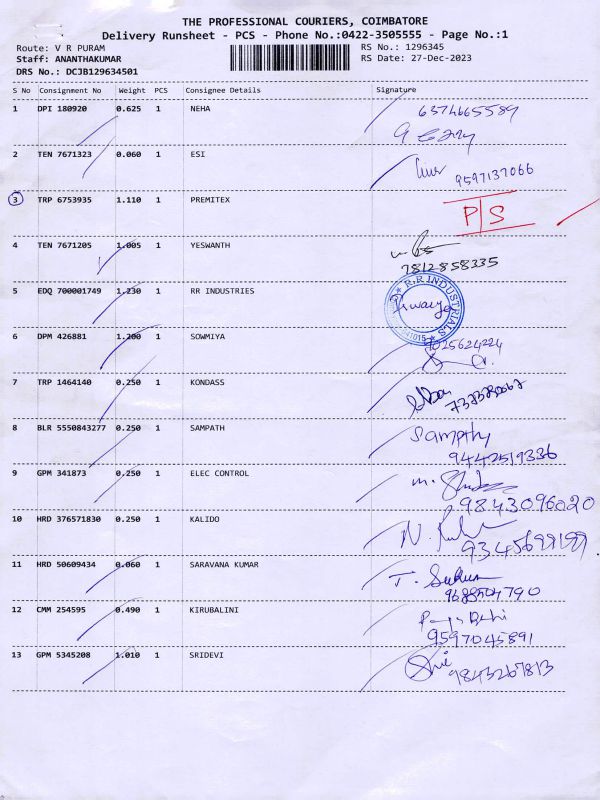 THE PROFESSIONAL COURIERS, COIMBATORE
Delivery Runsheet - PCS - Phone No.:0422-3505555 - Page No.:1
Route: V R PURAM
Staff: ANANTHAKUMAR
DRS No.: DCJB129634501
RS No.: 1296345
RS Date: 27-Dec-2023
S No Consignment No Weight PCS Consignee Details Signature
1 DPI 180920 0.625 1 NEHA 6374665589
2 TEN 7671323 0.060 1 ESI
9597137066
3 TRP 6753935 1.110 1 PREMITEX P/S
4 TEN 7671205 1.005 1 YESWANTH
7812858335
5 EDQ 700001749 1.230 1 RR INDUSTRIES R.R INDUSTRIALS
6 DPM 426881 1.200 1 SOWMIYA
7 TRP 1464140 0.250 1 KONDASS
8 BLR 5550843277 0.250 1 SAMPATH Sampthy
9442519336
9 GPM 341873 0.250 1 ELEC CONTROL
9843096020
10 HRD 376571830 0.250 1 KALIDO
11 HRD 50609434 0.060 1 SARAVANA KUMAR
9688504790
12 CMM 254595 0.490 1 KIRUBALINI
9597045891
13 GPM 5345208 1.010 1 SRIDEVI
9843267813